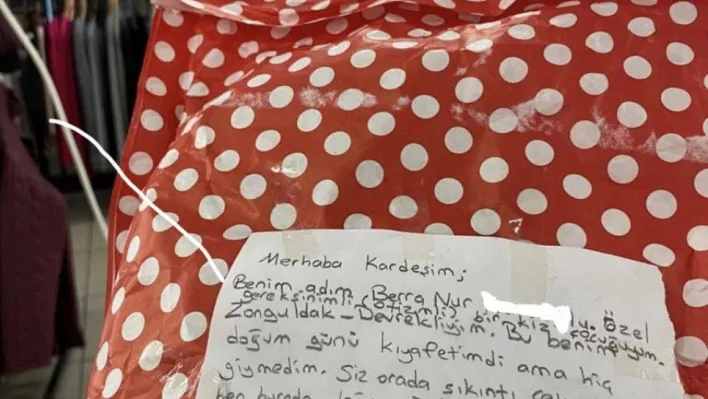 Merhaba Kardeşim;
Benim adım Berra Nur
gereksinimli (otizmli) bir kız çocuğuyum. Özel
Zonguldak - Devrekliyim. Bu benim
doğum günü kıyafetimdi ama hiç
giymedim. Siz orada sıkıntı
ben burada